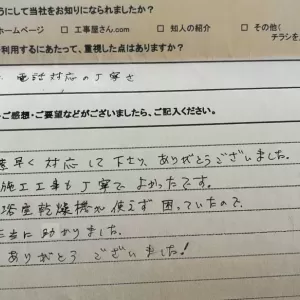 うにして当社をお知りになられましたか?
ホームページ □ 工事屋さん.com □ 知人の紹介 □ その他(
チラシを
利用するにあたって、重視した点はありますか?
電話対応の丁寧さ
ご感想・ご要望などがございましたら、ご記入ください。
早く対応して下さり、ありがとうございました。
施工工事も丁寧でよかったです。
浴室乾燥機が使えず困っていたので、
当に助かりました。
ありがとうございました!